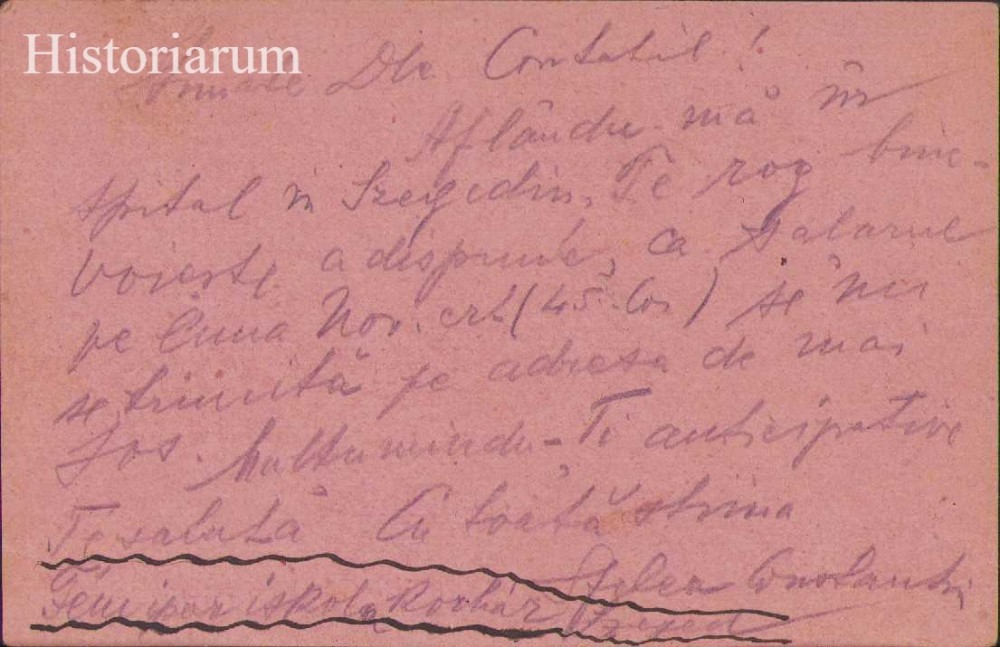 Historiarum
Stimate Dle Contabil!
Aflându-mă în
spital in Szegedin, Te rog bine-
voiește a dispune, ca salarul
pe luna Nov. crt. (45 Cor) se mi
se trimită pe adresa de mai
jos. Multumindu-Ti anticipative
Te saluta Cu toată stima
Constantin
Fémipar iskola Szeged